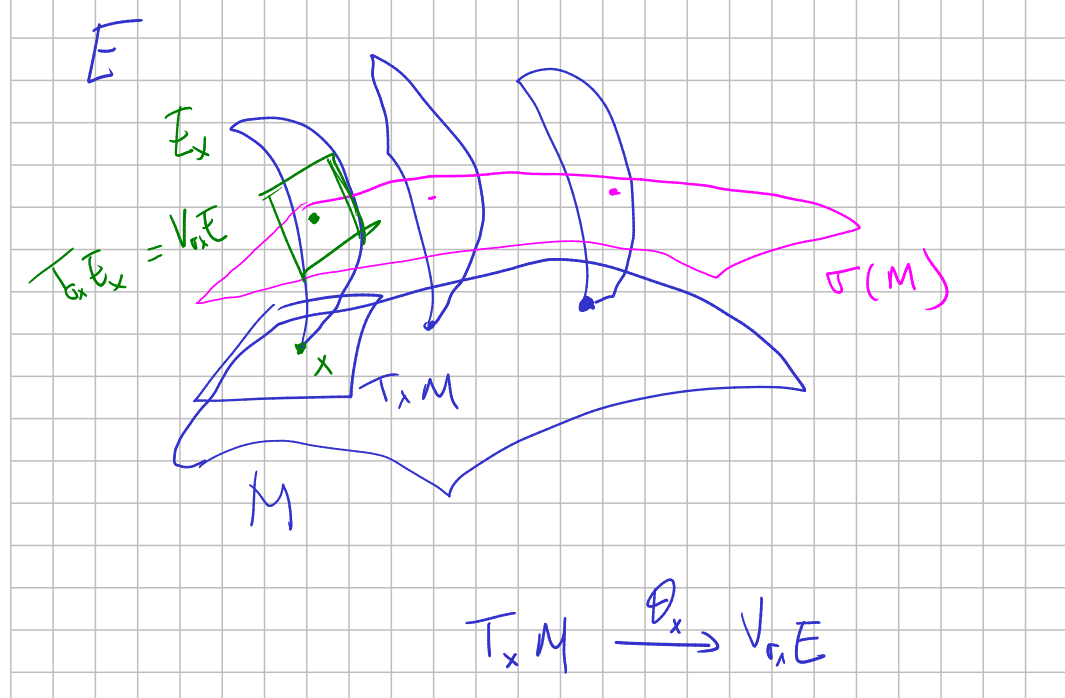 E
E_x
T_{σx} E_x = V_{σx} E
σ(M)
x
T_x M
M
T_x M \xrightarrow{θ_x} V_{σx} E